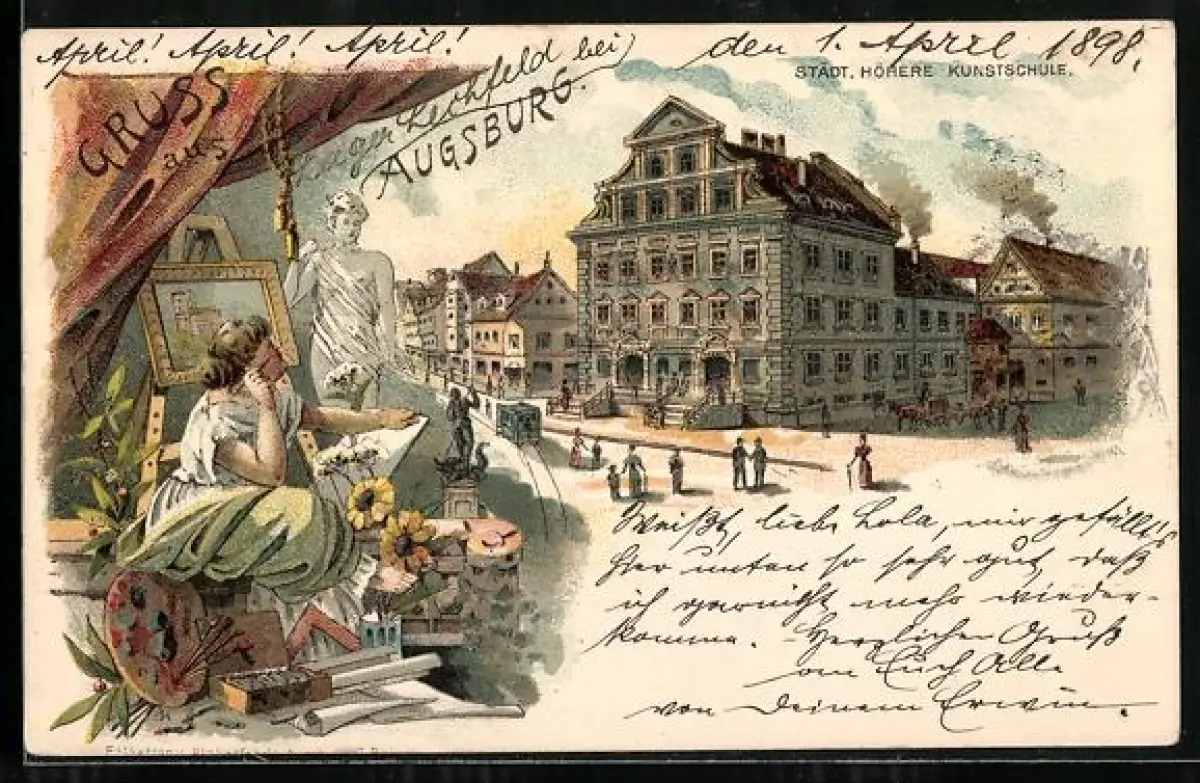 April! April! April! den 1. April 1898.
STÄDT. HÖHERE KUNSTSCHULE.
GRUSS
aus
Lager Lechfeld bei
AUGSBURG.
Weißt, liebe Lola, mir gefällt's
hier unten so sehr gut, daß
ich garnicht mehr wieder-
komme. Herzlichen Gruß
an Euch Alle
von Deinem Erwin.